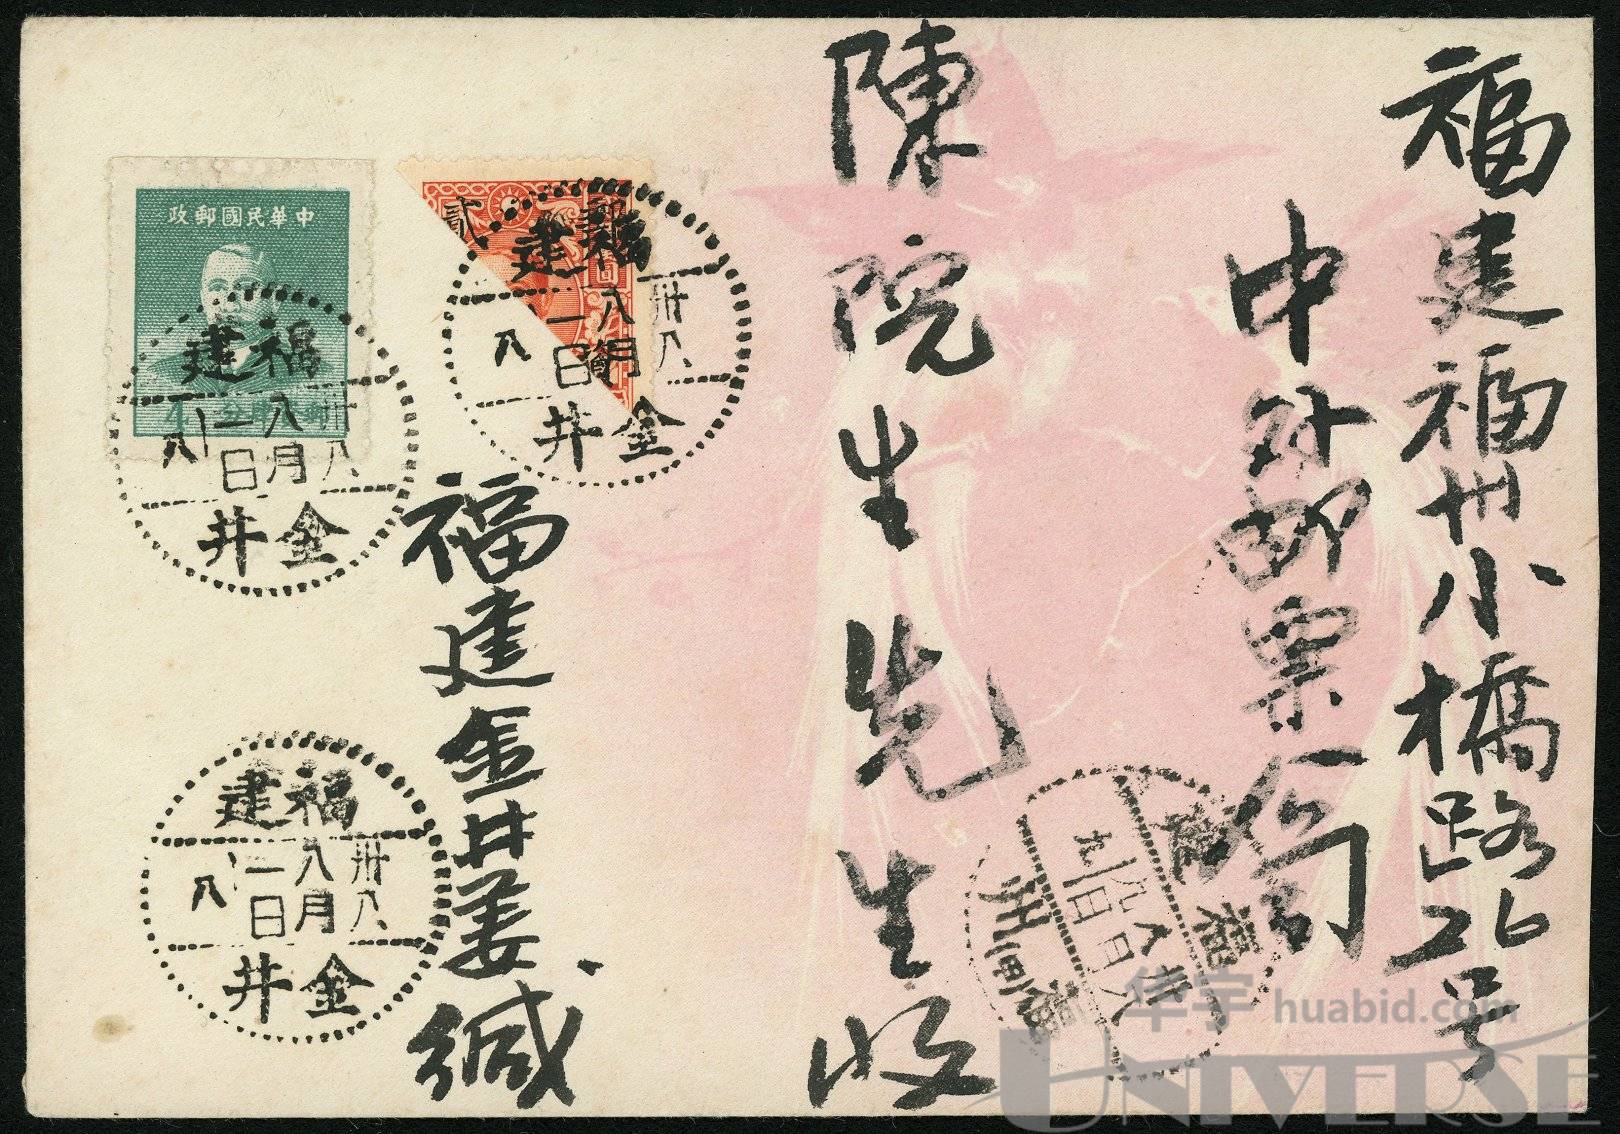 福建福州小橋路26号
中外邮票公司
陳院生先生收
福建金井姜缄
中華民國郵政
4
分
貳
福建
卅八
八月
一日
八
金井
福建
卅八
八月
一日
八
金井
福建
卅八
八月
一日
八
金井
福建
卅八
八月
九日
九
福州
华宇 huabid.com
UNIVERSE